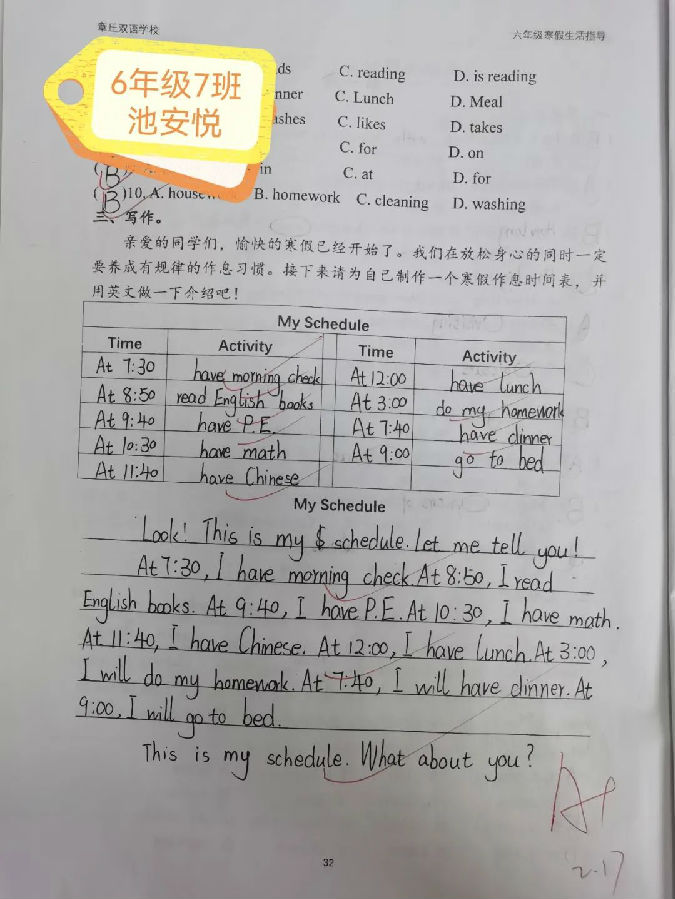 章丘双语学校
六年级寒假生活指导
6年级7班
池安悦
C. reading D. is reading
C. Lunch D. Meal
C. likes D. takes
C. for D. on
in C. at D. for
(B)10. A. B. homework C. cleaning D. washing
三、写作。
亲爱的同学们，愉快的寒假已经开始了。我们在放松身心的同时一定
要养成有规律的作息习惯。接下来请为自己制作一个寒假作息时间表，并
用英文做一下介绍吧！
My Schedule
Time Activity Time Activity
At 7:30 have morning check At 12:00 have lunch
At 8:50 read English books At 3:00 do my homework
At 9:40 have P.E. At 7:40 have dinner
At 10:30 have math At 9:00 go to bed
At 11:40 have Chinese
My Schedule
Look! This is my schedule. Let me tell you!
At 7:30, I have morning check. At 8:50, I read
English books. At 9:40, I have P.E. At 10:30, I have math.
At 11:40, I have Chinese. At 12:00, I have lunch. At 3:00,
I will do my homework. At 7:40, I will have dinner. At
9:00, I will go to bed.
This is my schedule. What about you?
A+
2.17
32